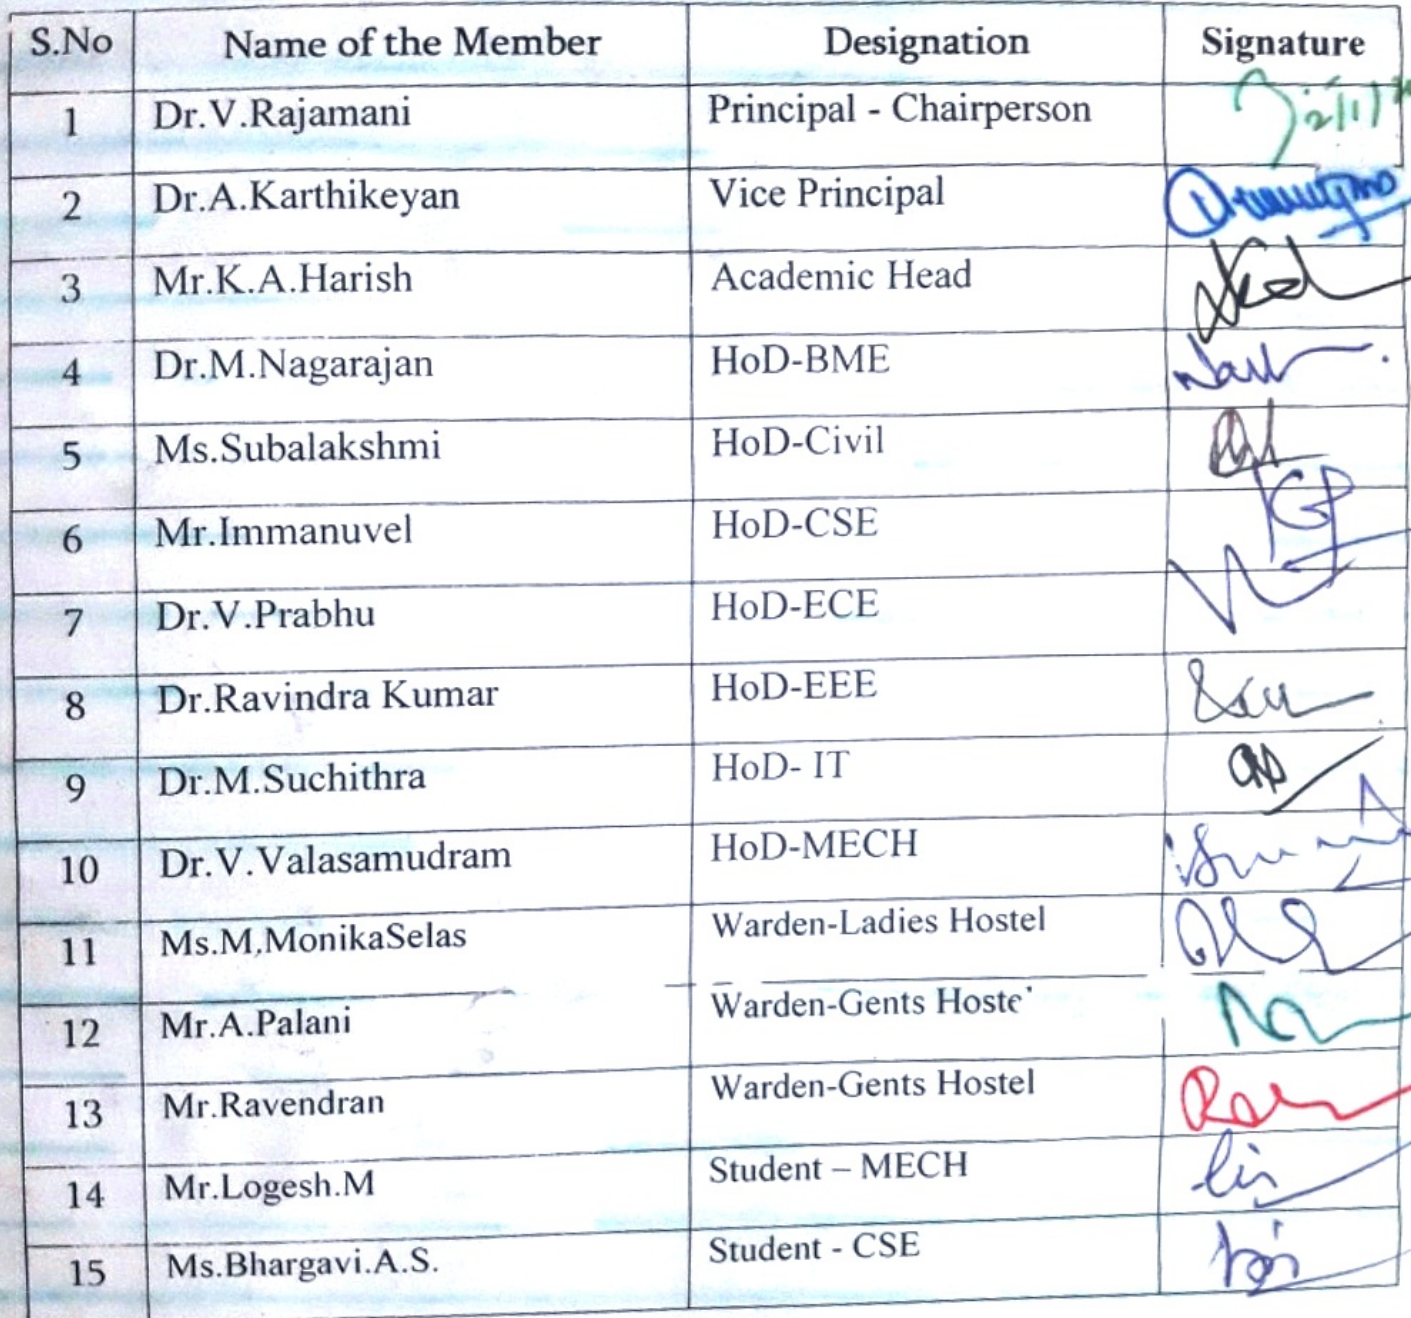 S.No Name of the Member Designation Signature
1 Dr.V.Rajamani Principal - Chairperson
2 Dr.A.Karthikeyan Vice Principal
3 Mr.K.A.Harish Academic Head
4 Dr.M.Nagarajan HoD-BME
5 Ms.Subalakshmi HoD-Civil
6 Mr.Immanuvel HoD-CSE
7 Dr.V.Prabhu HoD-ECE
8 Dr.Ravindra Kumar HoD-EEE
9 Dr.M.Suchithra HoD- IT
10 Dr.V.Valasamudram HoD-MECH
11 Ms.M,MonikaSelas Warden-Ladies Hostel
12 Mr.A.Palani Warden-Gents Hoste'
13 Mr.Ravendran Warden-Gents Hostel
14 Mr.Logesh.M Student – MECH
15 Ms.Bhargavi.A.S. Student - CSE